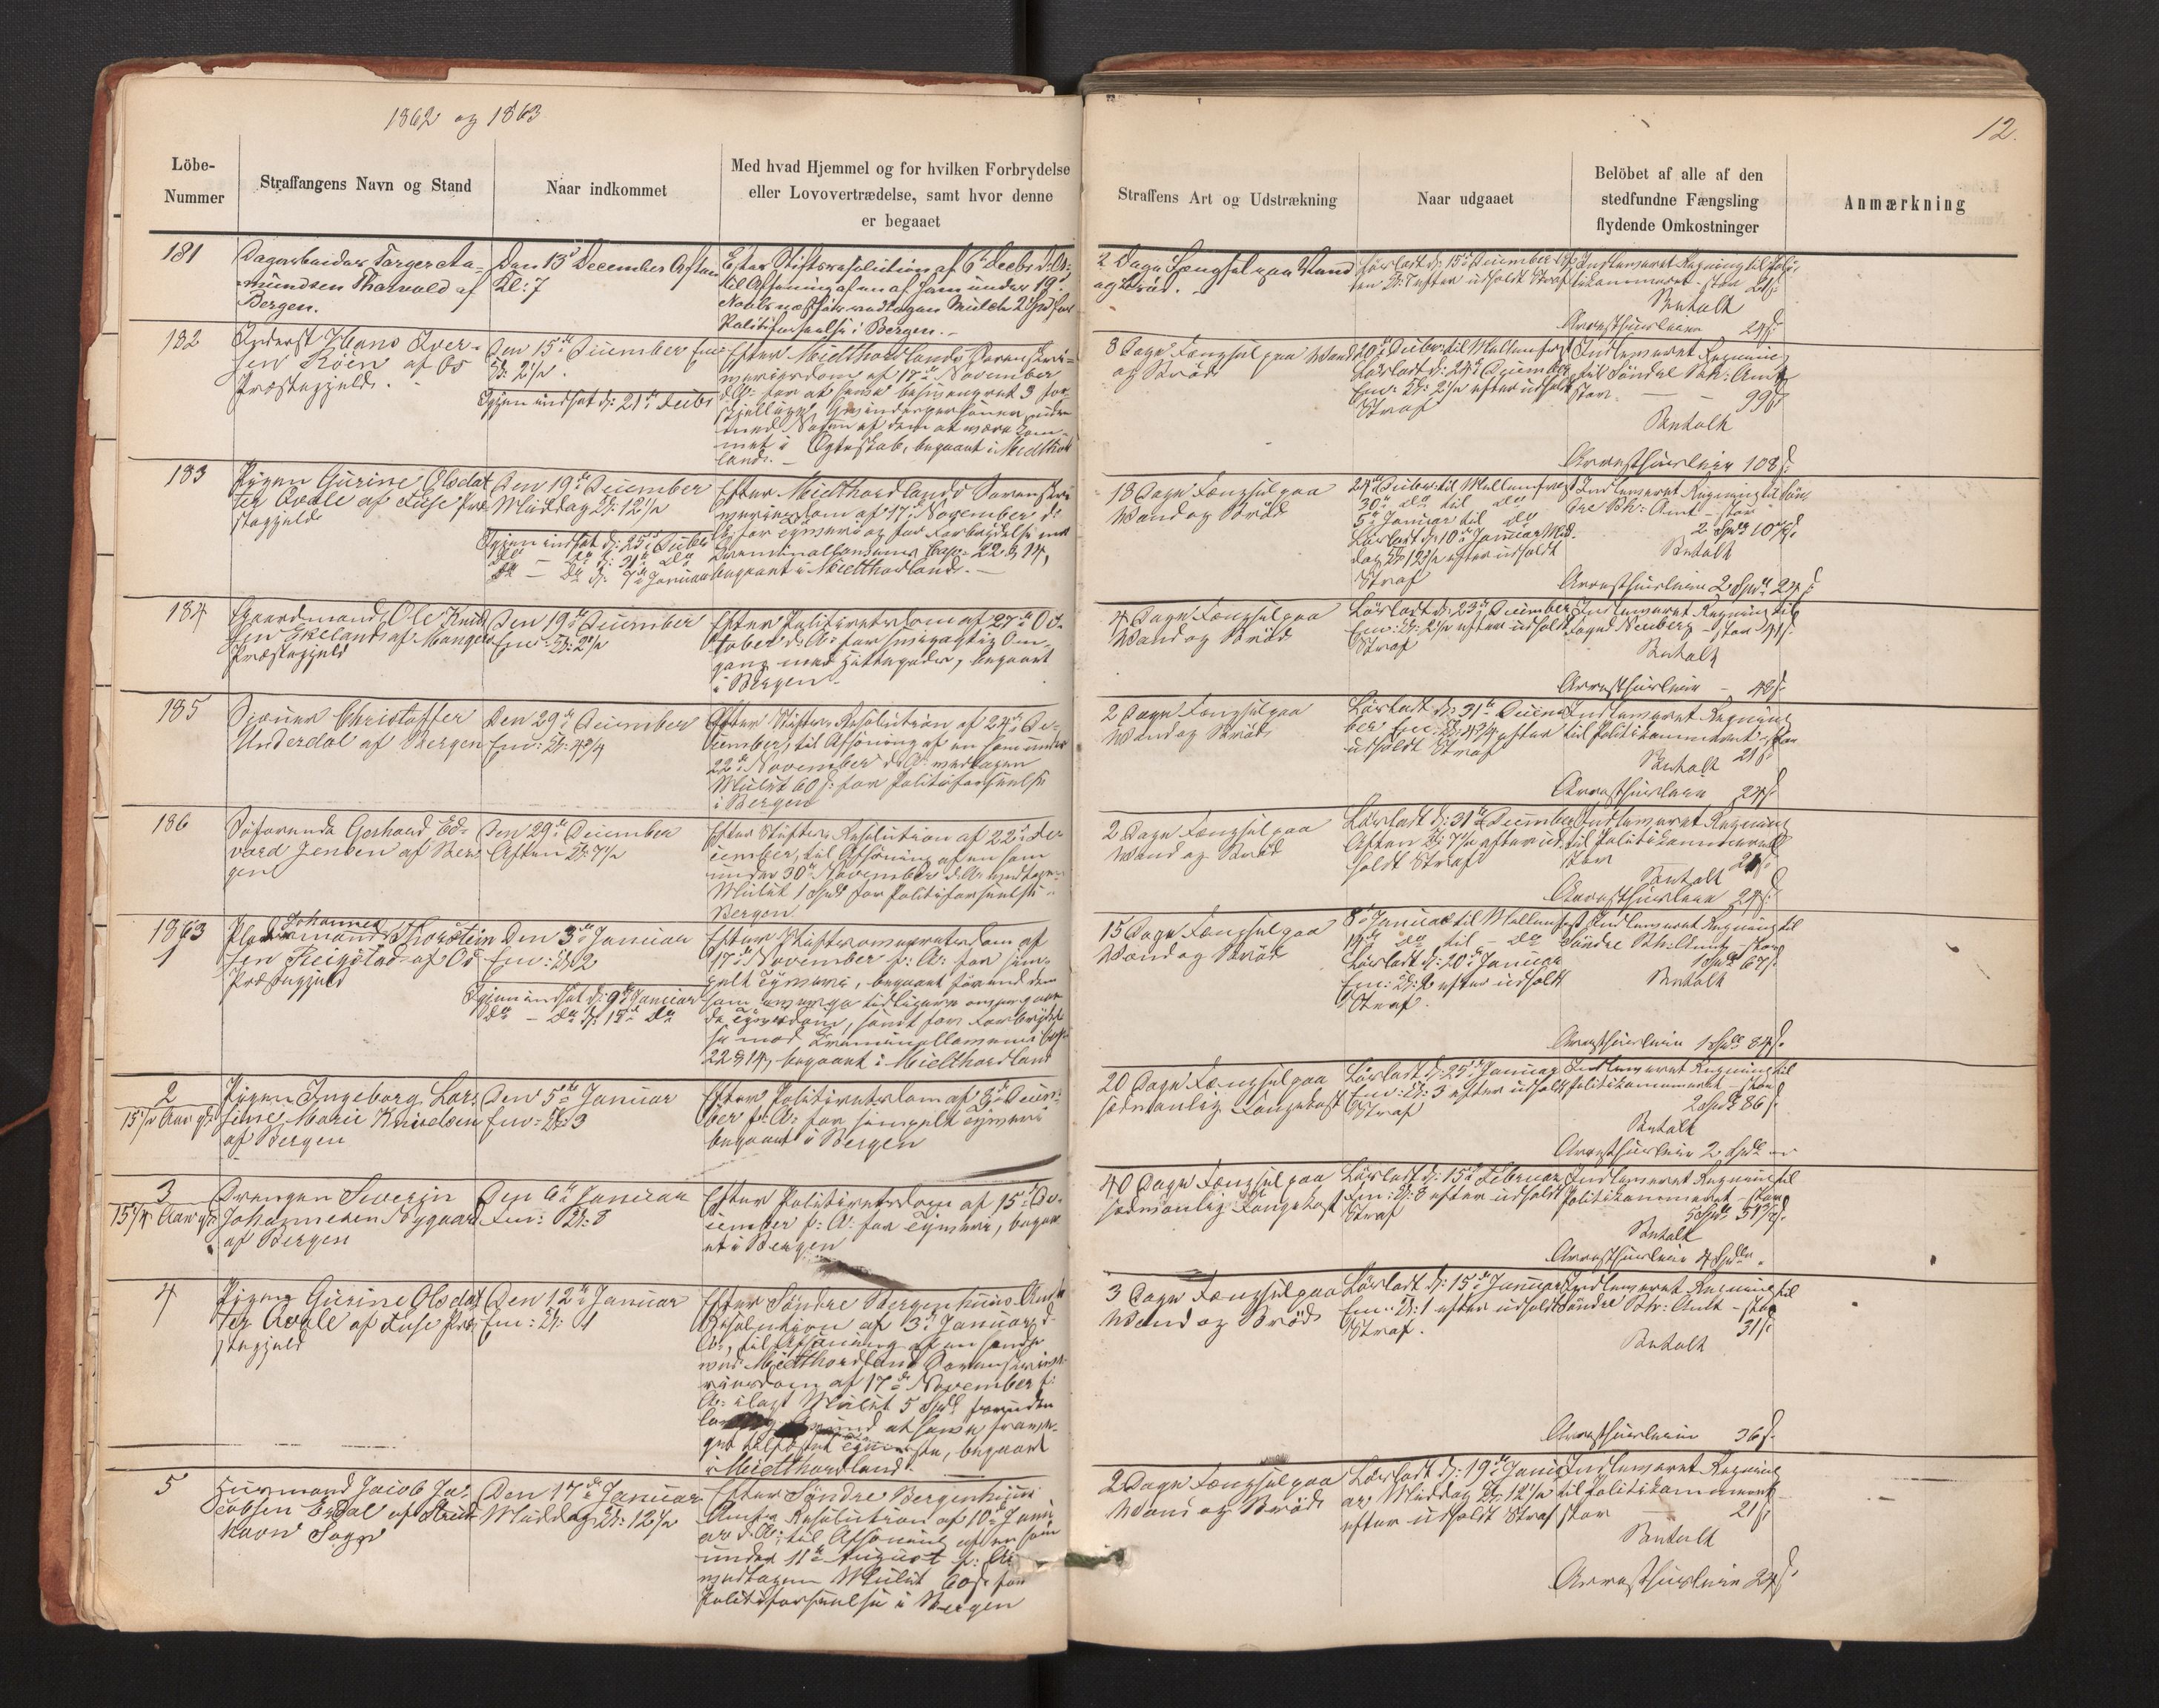 1862 og 1863
12.
Löbe-
Nummer
Straffangens Navn og Stand
Naar indkommet
Med hvad Hjemmel og for hvilken Forbrydelse
eller Lovovertrædelse, samt hvor denne
er begaaet
Straffens Art og Udstrækning
Naar udgaaet
Belöbet af alle af den
stedfundne Fængsling
flydende Omkostninger
Anmærkning
181
Dagarbeider Torger Aa-
mundsen Thorvald af
Bergen.
Den 13de December Aften
Kl: 7
Efter Stiftsresolution af 6te Decbr d. A:,
til Afsoning af en af ham under 19
Politiforseelse i Bergen.
2 Dage Fængsel paa Vand
og Bröd.
Indleveret Regning til Poli-
tikammeret - stor 21 s.
Betalt
Arresthuusleie 24 s.
182
Inderst Hans Iver-
sen Röen af Os
Præstegjeld.
Den 15de December Em:
Kl: 2½.
Igjen indsat d: 21de Decbr
Efter Midthordlands Sorenskri-
verieesdom af 17de November
d. A: for at have besvangret 3 for-
skjellige Qvindespersoner uden
med Nogen af dem at være kom-
met i Ægteskab, begaaet i Midthord
land. -
8 Dage Fængsel paa Vand
og Bröd
20de Decbr til Mellemfrist
Lösladt d: 24de December
Em: Kl: 2½ efter udholdt
Straf
Indleveret Regning
til Söndre Bh: Amt
stor - 99 s.
Betalt
Arresthuusleie 108 s.
183
Pigen Gurine Olsdat
ter Ovale af Fuse Præ
stegjeld
Den 19de December
Middag Kl: 12½
Igjen indsat d: 25de Decbr
do - do d: 31te do
do - do d: 7de Januar
Efter Midthordlands Sorenskri
veriesdom af 17de November d:
A: for Tyveri og for Forbrydelse mod
Criminallovens Cap: 22 § 14,
begaaet i Midthordland. -
13 Dage Fængsel paa
Vand og Bröd
24de Decbr til Mellemfrist
30te do til do
5te Januar til do
Lösladt d: 10de Januar Mid-
dag Kl: 12½ efter udholdt
Straf
Indleveret Regning til Sön
dre Bh: Amt - stor
Betalt
Arresthuusleie 2 Spd 24 s
184
Gaardmand Ole Knud
sen Ekeland af Manger
Præstegjeld
Den 19de December
Em: Kl: 2½
Efter Politiretsdom af 27de Oc-
tober d. A: for svigagtig Om-
gang med Hittegods, begaaet
i Bergen
4 Dage Fængsel paa
Vand og Bröd
Lösladt d: 23de December
Em: Kl: 2½ efter udholdt
Straf
Indleveret Regning til
Foged Nieuberg - stor 41 s.
Betalt
Arresthuusleie - 48 s.
185
Skriver Christoffer
Underdal af Bergen
Den 29de December
Em: Kl: 4¾
Efter Stifts-Resolution af 24de De-
cember, til Afsoning af en ham under
22de November d. A: vedtagen
Mulct 60 s: for Politiforseelse
i Bergen
2 Dage Fængsel paa
Vand og Bröd
Lösladt d: 31te Decem-
ber Em: Kl: 4¾ efter
udholdt Straf
Indleveret Regning
til Politikammeret - stor
21 s.
Betalt
Arresthuusleie 24 s.
186
Söfarende Gerhard Ed-
vard Jensen af Ber-
gen
Den 29de December
Aften Kl: 7½
Efter Stifts-Resolution af 22de De-
cember, til Afsoning af en ham
under 30te November d. A: vedtagen
Mulct 1 Spd for Politiforseelse i
Bergen
2 Dage Fængsel paa
Vand og Bröd
Lösladt d: 31te December
Aften Kl: 7½ efter ud-
holdt Straf
Indleveret Regning
til Politikammeret
stor 21 s.
Betalt
Arresthuusleie 24 s.
1863
1
Johannes
Pladsmand Thorstein
sen Heigstad af Os
Præstegjeld
Den 3de Januar
Em: Kl: 2
Igjen indsat d: 9de Januar
do - do d: 15de do
Efter Stiftsoverretsdom af
17de November f: A: for sim-
pelt Tyveri, begaaet förend den
ham overgaa tidligere overgaaen
de Tyvsdom, samt for Forbrydel
se mod Criminallovens Cap:
22 § 14, begaaet i Midthordland
15 Dage Fængsel paa
Vand og Bröd
8de Januar til Mellemfrist
Lösladt d: 20de Januar
Em: Kl: 2 efter udholdt
Straf.
Indleveret Regning til
Söndre Bh: Amt - stor
1 Spd 67 s.
Betalt
Arresthuusleie 1 Spd 84 s.
2
15½ Aar gl:
Pigen Ingeborg Lar-
sine Marie Knudsen
af Bergen
Den 5te Januar
Em: Kl: 3
Efter Politiretsdom af 3de Decem-
ber f: A: for simpelt Tyveri
begaaet i Bergen
20 Dage Fængsel paa
sædvanlig Fangekost
Lösladt d: 25de Januar
Em: Kl: 3 efter udholdt
Straf
Indleveret Regning til
Politikammeret - stor
2 Spd 86 s.
Betalt
Arresthuusleie 2 Spd "
3
15¼ Aar gl:
Drengen Severin
Johannesen Nygaard
af Bergen
Den 6te Januar
Em: Kl: 8
Efter Politiretsdom af 15de De-
cember f: A: for Tyveri, begaa
et i Bergen
40 Dage Fængsel paa
sædvanlig Fangekost
Lösladt d: 15de Februar
Em: Kl: 8 efter udholdt
Straf
Indleveret Regning til
Politikammeret - stor
Betalt
Arresthuusleie 4 Spd "
4
Pigen Gurine Olsdat
ter Ovale af Fuse Præ-
stegjeld
Den 12te Januar
Em: Kl: 1
Efter Söndre Bergenhuus Amts
Resolution af 3de Januar d:
A:, til Afsoning af en hende
ved Midthordland Sorenskrive-
riesdom af 17de November f:
A: ilagt Mulct 5 Spd
begaaet
i Midthordland.
3 Dage Fængsel paa
Vand og Bröd
Lösladt d: 15de Januar
Em: Kl: 1 efter udholdt
Straf.
Indleveret Regning til
Söndre Bh: Amt - stor
31 s.
Betalt
Arresthuusleie 36 s.
5
Huusmand Jacob Ja-
cobsen Erdal af
havn Sogn
Den 17de Januar
Middag Kl: 12½
Efter Söndre Bergenhuus
Amts Resolution af 10de Janu
ar d. A: til Afsoning af en ham
under 11te August f: A:
vedtagen Mulct 60 s. for
Politiforseelse i Bergen
2 Dage Fængsel paa
Vand og Bröd
Lösladt d: 19de Janu-
ar Middag Kl: 12½
efter udholdt Straf
Indleveret Regning
til Politikammeret
stor - 21 s.
Betalt
Arresthuusleie 24 s.